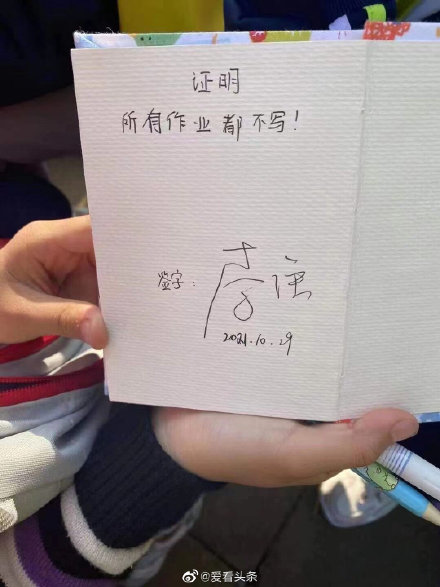 证明
所有作业都不写!
签字:李佳
2021.10.29
@爱看头条